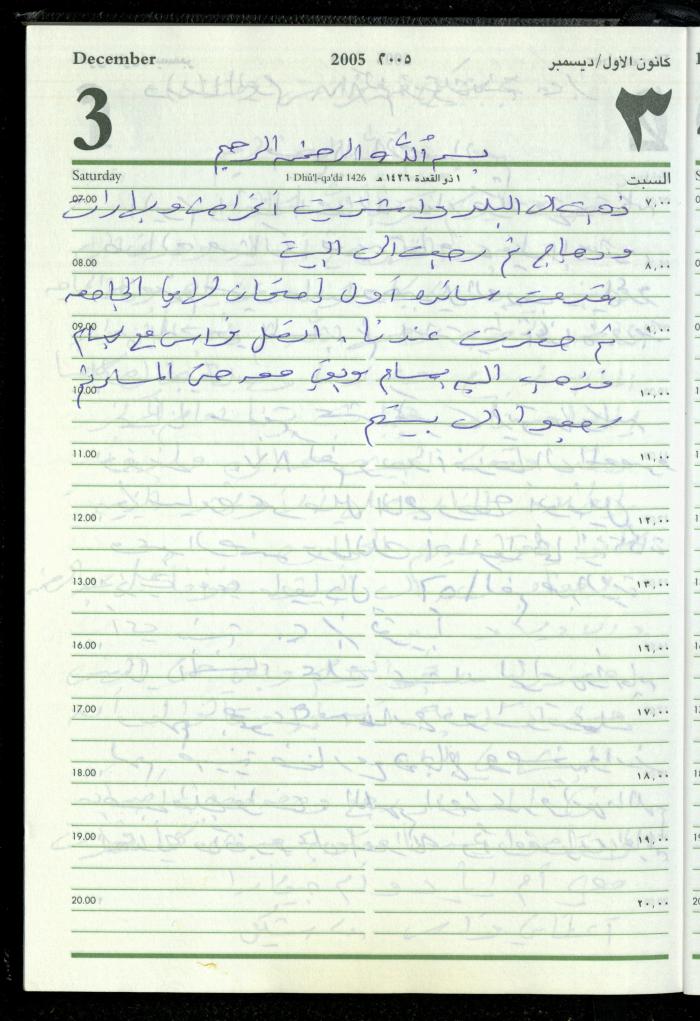 December 2005 ٢٠٠٥ كانون الاول/ديسمبر
3 ٣
بسم الله الرحمن الرحيم
Saturday 1 Dhû'l-qa'da 1426 ١ ذو القعدة ١٤٢٦ هـ السبت
07.00 ذهبت الى البلد واشتريت اغراض و ٧,٠٠
ودجاج ثم رجعت الى البيت
08.00 ٨,٠٠
قدمت سائده أول إمتحان لها الجامعه
09.00 ٩,٠٠
ثم حضرت عندنا. اتصل فراس مع بسام
فذهب اليه بسام وبقي معه حتى المساء ثم
10.00 ١٠,٠٠
رجعوا الى بيتهم
11.00 ١١,٠٠
12.00 ١٢,٠٠
13.00 ١٣,٠٠
16.00 ١٦,٠٠
17.00 ١٧,٠٠
18.00 ١٨,٠٠
19.00 ١٩,٠٠
20.00 ٢٠,٠٠